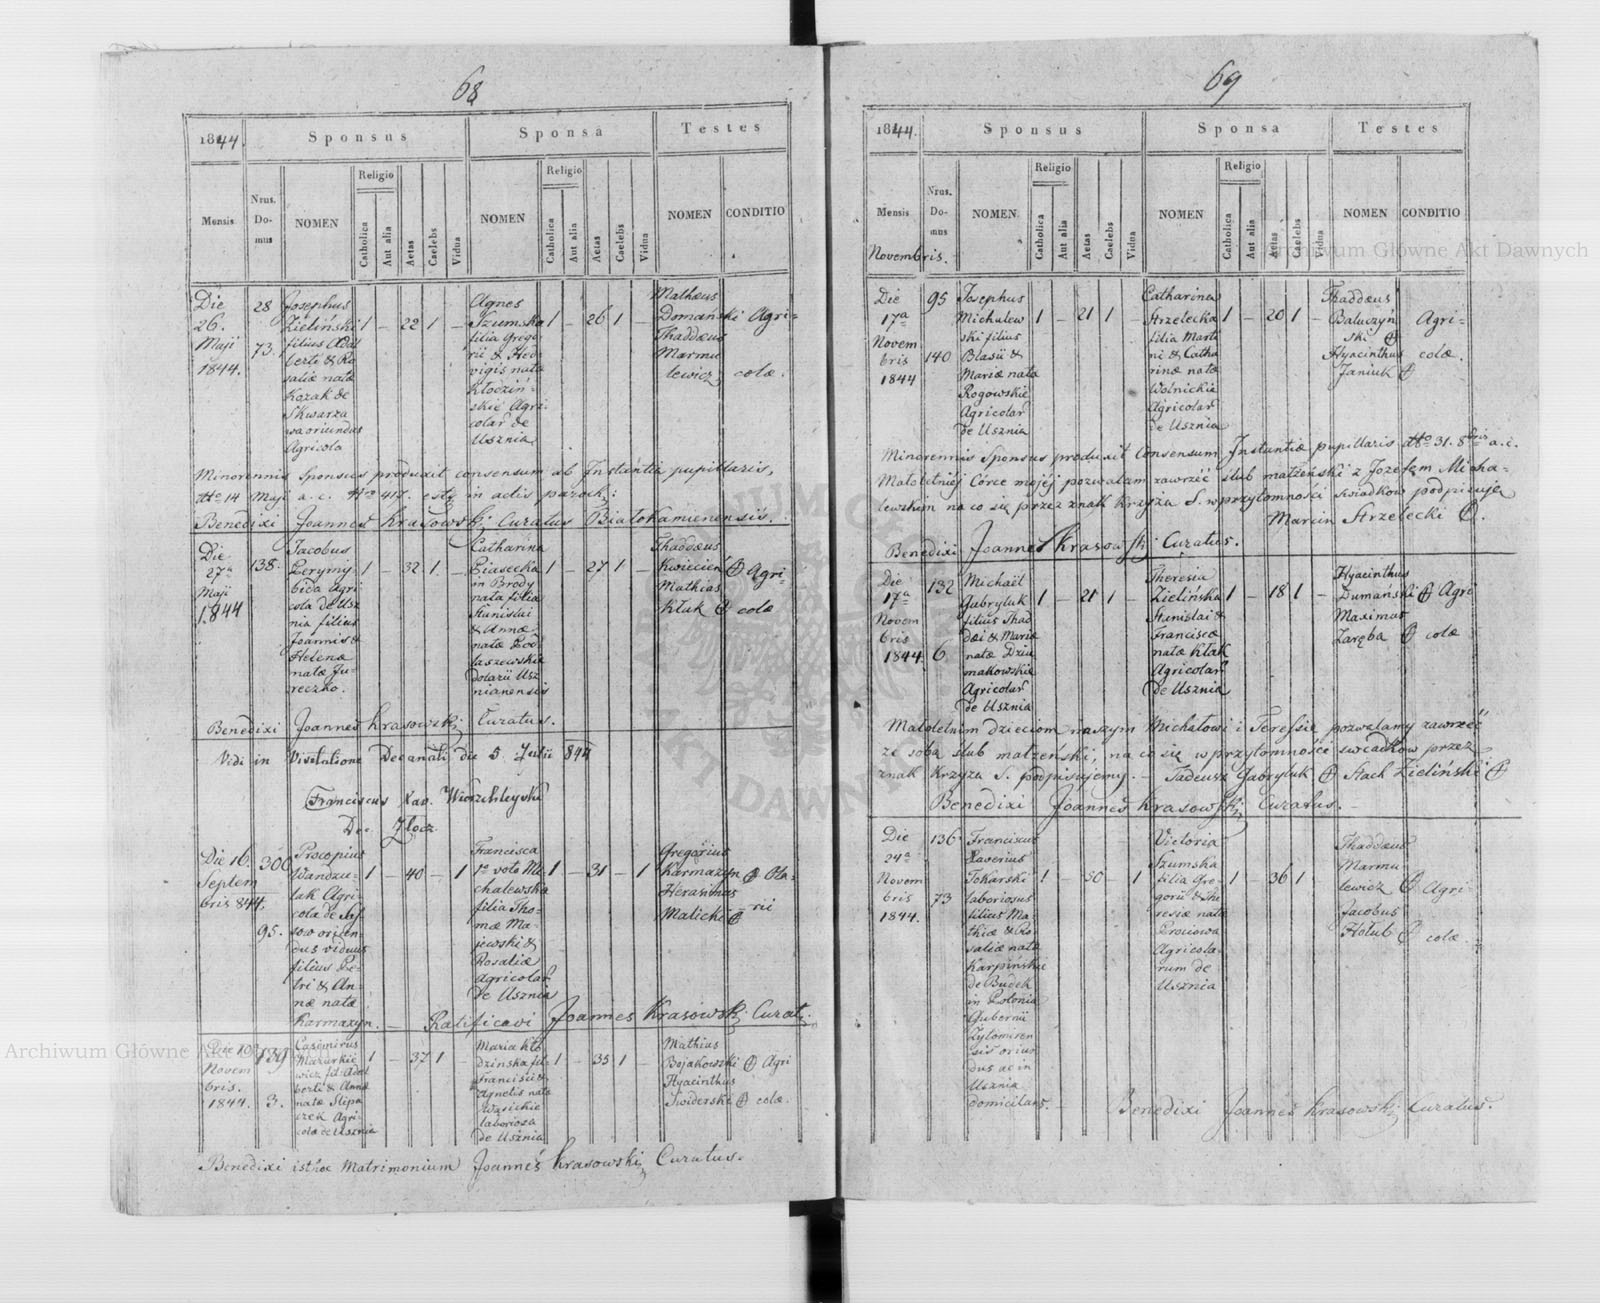 68
1844.
Sponsus
Sponsa
Testes
Mensis
Nrus. Domus
NOMEN
Religio
Catholica
Aut alia
Aetas
Caelebs
Vidua
NOMEN
Religio
Catholica
Aut alia
Aetas
Caelebs
Vidua
NOMEN
CONDITIO
Die
26.
Maji
1844.
28
73.
Josephus
Zieliński
filius Adal
berti & Ro
saliæ natæ
Kozak de
Skwarza
wa oriundus
Agricola
1 — 22 1 —
Agnes
Szumska
filia Grego
rii & Hed
vigis natæ
Kłodziń-
skie Agri
colar de
Usznia
1 — 26 1 —
Mathæus
Domański Agri-
Thaddæus
Marmu
lewicz colæ.
Minorennis Sponsus produxit consensum ab Instantia pupillaris,
dtto 14 Maji a. c. Nro 417. est in actis paroch:
Benedixi Joannes Krasowski Curatus Białokamienensis.
Die
27a
Maji
1844
138.
Jacobus
Perymy
bida Agri
cola de Usz
nia filius
Joannis &
Helenæ
natæ Ju-
reczko.
1 — 32 1 —
Catharina
Piasecka
in Brody
nata filia
Stanislai
& Annæ
natæ Pod
laszewskie
dolarii Usz
nianensis
1 — 27 1 —
Thaddæus
Kwiecień Agri-
Mathias
Kłuk colæ
Benedixi Joannes Krasowski Curatus.
Vidi in Visitatione Decanali die 5 Julii 844
Franciscus Xav. Wierzchleyski
Dec Złocz
Die 16.
Septem
bris 844.
300
95.
Procopius
Wandzu-
lak Agri
cola de
sow oriun-
dus viduus
filius Pe-
tri & An-
næ natæ
Karmazyn.
1 — 40 — 1
Francisca
1o voto Mi
chalewska
filia Tho-
mæ Ma-
jewski &
Rosaliæ
Agricolar
de Usznia
1 — 31 — 1
Gregorius
Karmazyn
Herasimus
Malicki
Ratificavi Joannes Krasowski Curat:
Die 10
Novem
bris.
1844.
139
3.
Casimirus
Mazurkie
wicz fil: Adal
berti & Annæ
natæ Slipa
czek Agri-
cola de Usznia
1 — 37 1 —
Maria Kło
dzińska fil-
Francisci &
Agnetis natæ
Kwasickie
laboriosa
de Usznia
1 — 35 1 —
Mathias
Bojakowski Agri
Hyacinthus
Świderski colæ.
Benedixi isthoc Matrimonium Joannes Krasowski Curatus.
69
1844.
Sponsus
Sponsa
Testes
Mensis
Nrus. Domus
NOMEN
Religio
Catholica
Aut alia
Aetas
Caelebs
Vidua
NOMEN
Religio
Catholica
Aut alia
Aetas
Caelebs
Vidua
NOMEN
CONDITIO
Novembris.
Die
17a
Novem
bris
1844
95
140
Josephus
Michalew
ski filius
Blasii &
Mariæ nata
Rogowskie
Agricolar
de Usznia
1 — 21 1 —
Catharina
Strzelecka
filia Marti
ni & Catha
rinæ natæ
Woźnickie
Agricolar
de Usznia
1 — 20 1 —
Thaddæus
Baluczyń
ski Agri-
Hyacinthus colæ.
Janiuk
Minorennis Sponsus produxit Consensum Instantiæ pupillaris dtto 31. 8bris a. c.
Małoletniéj Córce mojéj pozwalam zawrzéć ślub małżeński z Józefem Micha-
lewskim na co się przez znak krzyża S. w przytomności świadków podpisuję
Marcin Strzelecki
Benedixi Joannes Krasowski Curatus.
Die
17a
Novem
bris
1844
132
6
Michaël
Gabryluk
filius Thad
dæi & Mariæ
natæ Dziu
makowskie
Agricolar
de Usznia
1 — 21 1 —
Theresia
Zielińska
Stanislai &
Franciscæ
natæ Kłak
Agricolar
de Usznia
1 — 18 1 —
Hyacinthus
Dumański Agri
Maximas
Zaręba colæ
Małoletnim dzieciom naszym Michałowi i Teressie pozwalamy zawrzéć
ze sobą ślub małżeński, na co się w przytomności świadków przez
znak krzyża S. podpisujemy. — Tadeusz Gabryluk Stach Zieliński
Benedixi Joannes Krasowski Curatus.
Die
24a
Novem
bris
1844.
136.
73
Franciscus
Xaverius
Tokarski
laboriosus
filius Ma-
thiæ & Ro-
saliæ natæ
Karpińskie
de Budek
in Polonia
Gubernii
Zytomiren
sis oriun
dus ac in
Usznia
domicilans.
1 — 50 — 1
Victoria
Szumska
filia Gre-
gorii & The
resiæ natæ
Agricola-
rum de
Usznia
1 — 36 1
Thaddæus
Marmu
lewicz Agri-
Jacobus
Hołub colæ.
Benedixi Joannes Krasowski Curatus.
Archiwum Główne Akt Dawnych
Archiwum Główne Akt